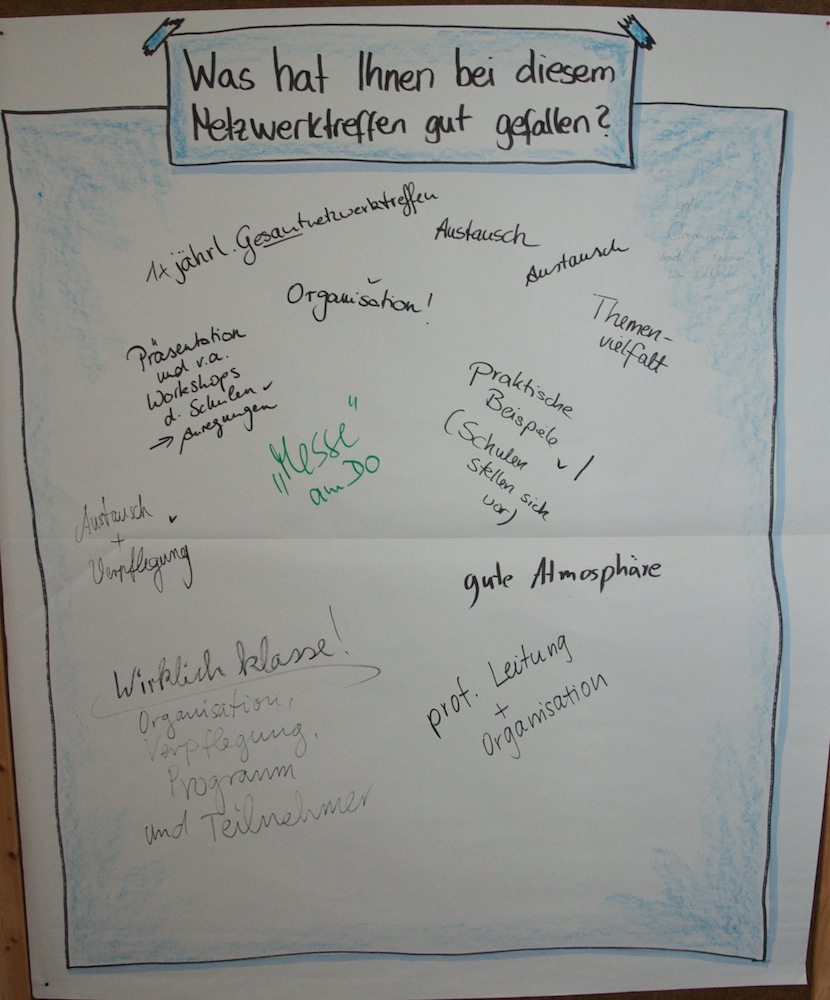 Was hat Ihnen bei diesem
Netzwerktreffen gut gefallen?
1x jährl. Gesamtnetzwerktreffen
Austausch
Austausch
gute
Organisation!
Themen-
vielfalt
Präsentation
und v.a.
Workshops
d. Schulen
→ Anregungen
„Messe"
am DO
praktische
Beispiele
(Schulen
stellen sich
vor)
Austausch
+
Verpflegung
gute Atmosphäre
Wirklich klasse!
Organisation,
Verpflegung,
Programm
und Teilnehmer
prof. Leitung
+
Organisation